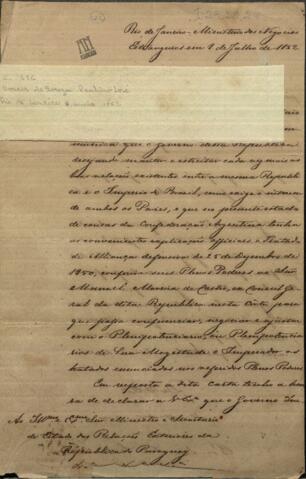 Rio de Janeiro - Ministerio dos Negocios
Estrangeiros em 8 de Julho de 1852
que o Governo dessa Republica
desejando manter e estreitar cada vez mais as
boas relações existentes entre a mesma Republi
ca e o Imperio do Brasil, como exige o interesse
de ambos os Paizes, e que no presente estado
de cousas da Confederação Argentina tenha
as convenientes explicações officiaes o Tratado
de Alliança defensiva de 25 de Dezembro de
1850, conferio seus Plenos Poderes ao Senr
Manoel Moreira de Castro, seu Consul Ge
ral da dita Republica nesta Corte para
que possa conferenciar, negociar e ajustar
com o Plenipotenciario, ou Plenipotencia
rios de Sua Magestade o Imperador, os
tratados enunciados nos referidos Plenos Poderes
Em resposta a dita Carta tenho a hon
ra de declarar a V. Exa que o Governo Im
Ao Illmo e Exmo Senr Ministro e Secretario
de Estado das Relações Exteriores da
Republica do Paraguay